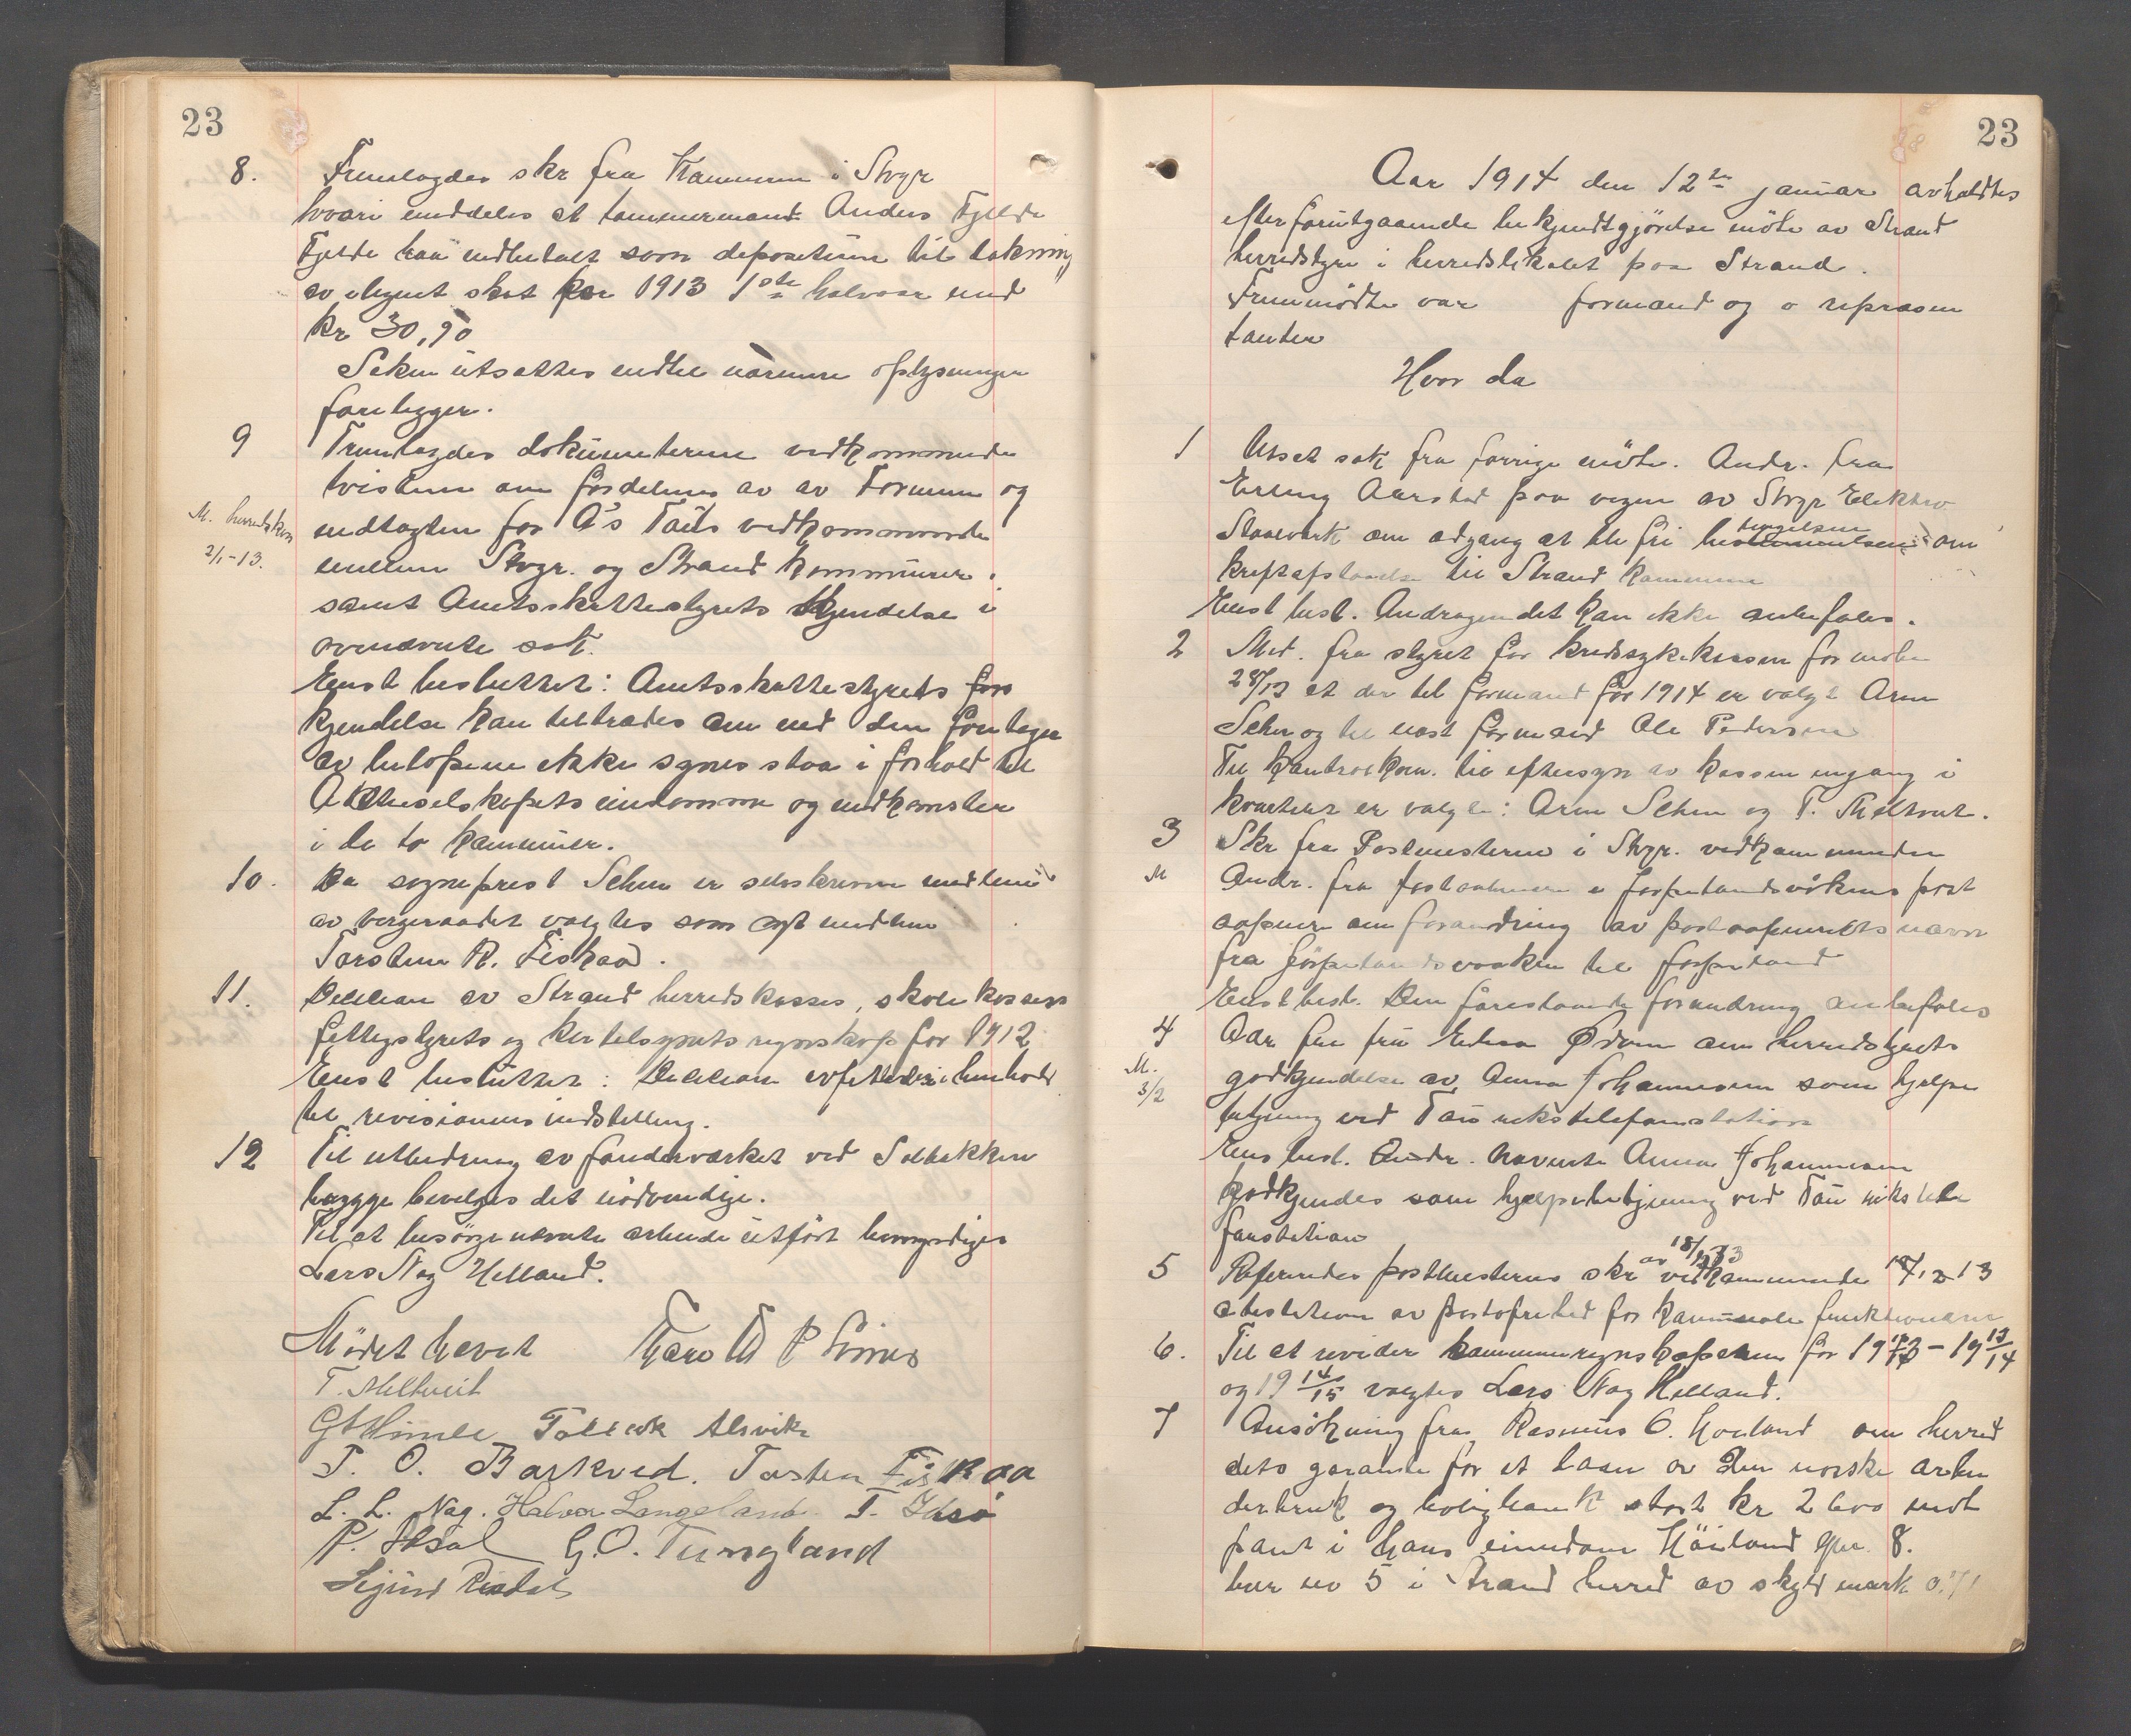 23
8. Fremlagdes skr fra Kæmneren i Stvgr
hvori meddeles at tømmermand Anders Fjelde
Fjelde har indbetalt som depositum til dækning
av ilignet skat for 1913 1ste halvaar med
kr 30,90
Saken utsættes indtil nærmere oplysninger
foreligger.
9 Fremlagdes dokumenterne vedkommende
tvisten om fordelning av av Formuen og
indtægten for A/s Taus vedkommende
M. herredskas
2/1-13.
mellem Stvgr. og Strand kommuner.
samt Amtsskattestyrets kjendelse i
ovennævnte sak.
Enst besluttet: Amtsskattestyrets for
kjendelse kan tiltrædes om end den
av beløpene ikke synes staa i forhold til
Aktieselskapets eiendomme og indkomster
i de to kommuner.
10. Da sogneprest Sehm er selvskreven medlem
av vergeraadet valgtes som nyt medlem
Torsten R. Fiskaa.
11. Decision av Strand herredskasses, skolekassens
fattigstyrets og regnskap for 1912
Enst besluttet: Decision avfattes i henhold
til revisionens indstilling.
12 Til utbedring av ved Solbakken
brygge bevilges det nødvendige.
Til at besørge nævnte arbeide utført bemyndiges
Lars Nag Helland.
Mødet hævet
T. Meltveit
G A Himle Tollak Alsvik
T. O. Barkved. Torsten Fiskaa
L. L. Nag. Halvor Langeland. T. Idsø
P. Idsal G. O. Tungland
Sigurd Risdal
23
Aar 1914 den 12te januar avholdtes
efter forutgaaende bekjendtgjørelse møte av Strand
herredstyre i herredslokalet paa Strand.
Fremmødte var formand og o repræsen
tanter
Hvor da
1 Utsat sak fra forrige møte. Andr. fra
Erling Aarstad paa vegne av Stvgr Elektro
Staalverk om adgang at bli fri om
kraftafstaaelse til Strand kommune
Enst besl. Andragendet kan ikke anbefales.
2 Med. fra styret for kredssykekassen for møte
28/12 at der til formand for 1914 er valgt Arm
Sehm og til næst formand Ole Pedersen
Til kontrolkom. til eftersyn av kassen engang i
kvartalet er valgte: Arm Sehm og T. Meltveit.
3 Skr fra Postmesteren i Stvgr. vedkommende
M Andr. fra i Jørpelandsvåkens post
aapneri om forandring av postaapneriets navn
fra Jørpelandsvaaken til Jørpeland
Enst besl. Den foreslaaede forandring anbefales
4 Adr fra fru Ødven om herredstyrets
M.
3/2
godkjendelse av Anna Johannesen som hjelpe
betjening ved Tau rikstelefonstation
Enst besl. Andr. nævnte Anna Johannesen
godkjendes som hjelpebetjening ved Tau rikstele
fonstation
5 Refereredes postmesterens skr av 18/12 13 vedkommende
attestation av portofrihed for kommunale funktionærer
6. Til at revidere kommuneregnskaperne for 19 12/13 - 19 13/14
og 19 14/15 valgtes Lars Nag Helland.
7 Ansökning fra Rasmus O. Høiland om herred
dets garanti for et laan av Den norske arbei
derbruk og boligbank stort kr 2600 mot
pant i hans eiendom Höiland gnr. 8.
bnr no 5 i Strand herred av skyld mark 0.71